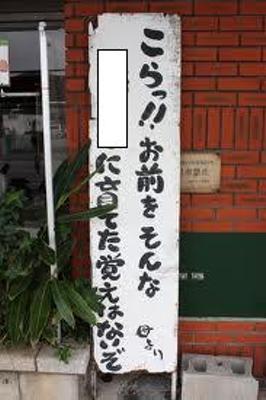 こらっ!!お前をそんな
に育てた覚えはないぞ
母より